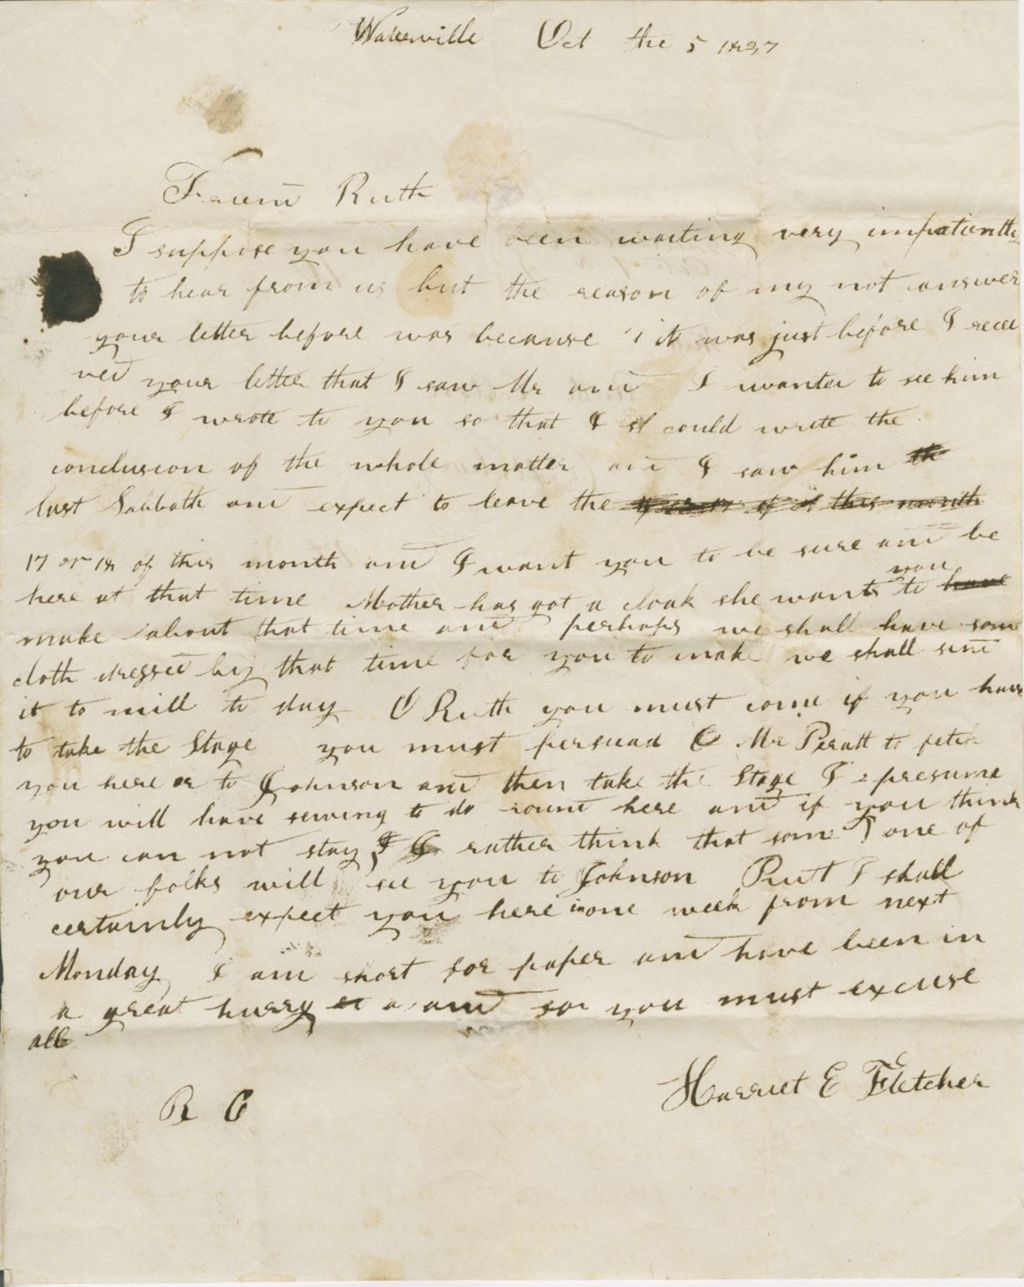 Waterville Oct the 5 1837
Friend Ruth
I suppose you have been waiting very impatiently
to hear from us but the reason of my not answer
your letter before was because it was just before I recei
ved your letter that I saw Mr and I wanted to see him
before I wrote to you so that I could write the
conclusion of the whole matter and I saw him the
last Sabbath and expect to leave the of this month
17 or 18 of this month and I want you to be sure and be
here at that time Mother has got a cloak she wants you to have
make about that time and perhaps we shall have some
cloth dressed by that time for you to make we shall send
it to mill to day O Ruth you must come if you have
to take the Stage you must persuad Mr Peratt to fetch
you here or to Johnson and then take the Stage I presume
you will have sewing to do round here and if you think
you can not stay I rather think that some one of
our folks will see you to Johnson Rut I shall
certainly expect you here in one week from next
Monday I am short for paper and have been in
a great hurry and so you must excuse
all
Harriet E Fletcher
R C